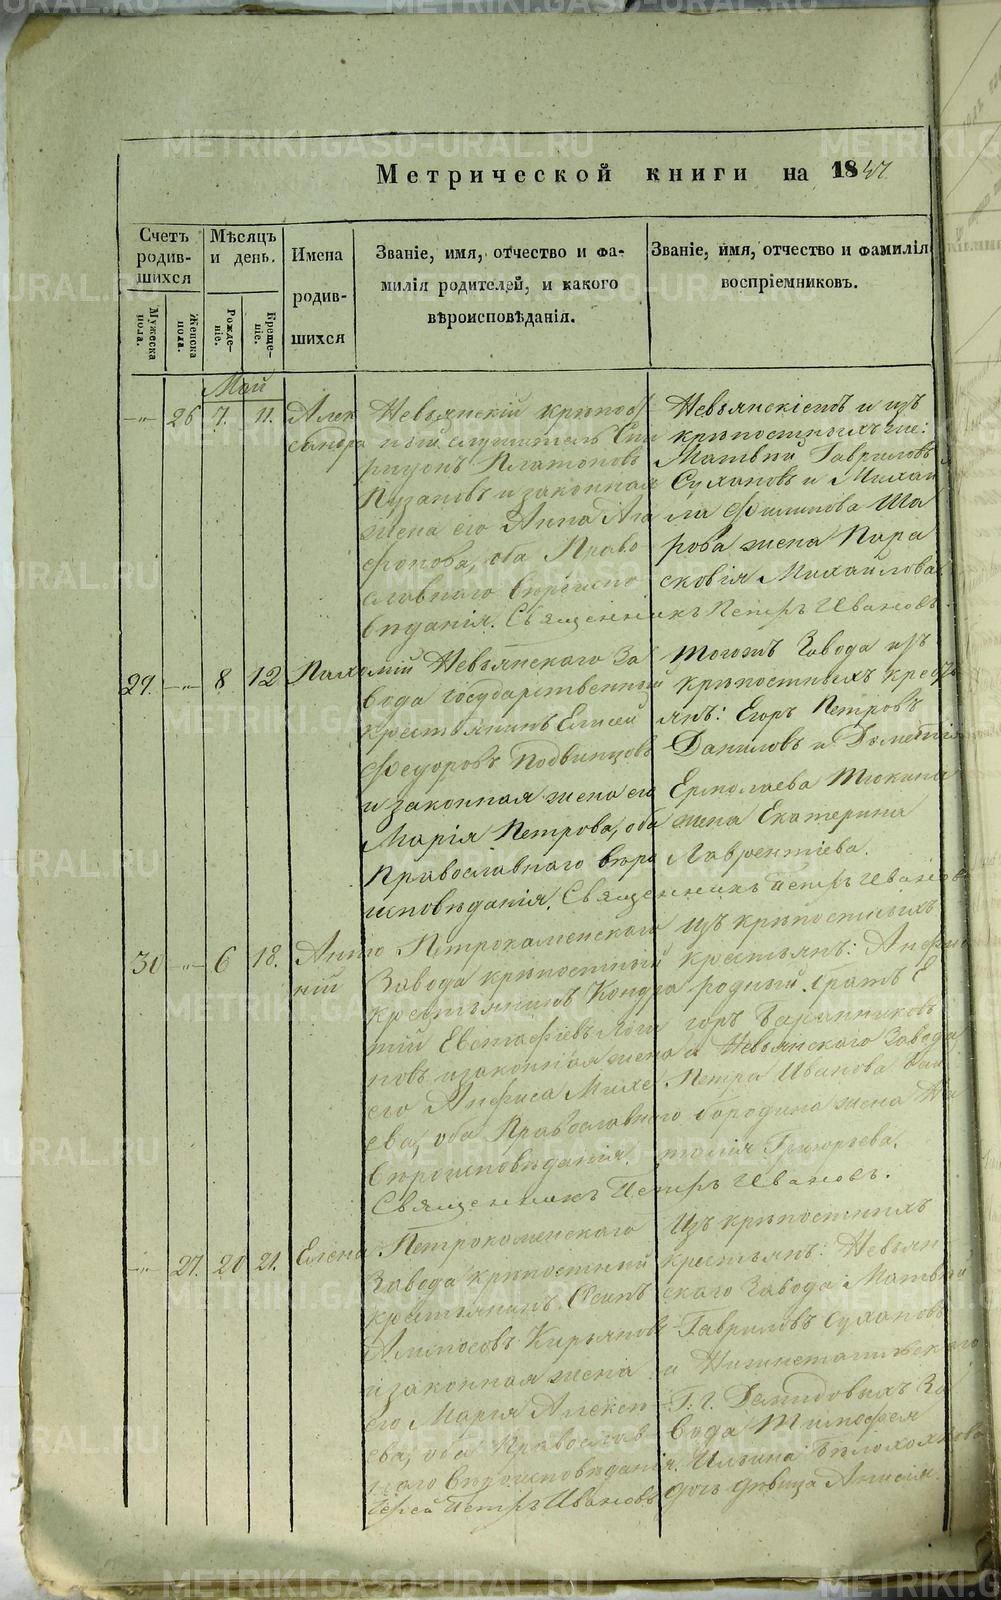 Метрической книги на 1847
Счетъ родившихся
Мужеска пола.
Женска пола.
Мѣсяцъ и день.
Рожденіе.
Крещеніе.
Имена родившихся
Званіе, имя, отчество и фамилія родителей, и какого вѣроисповѣданія.
Званіе, имя, отчество и фамилія воспріемниковъ.
Май
26 7. 11. Алек
сандра
Невьянскій крѣпост
ной служитель Спи
ридонъ Платоновъ
Пузановъ и законная
жена его Анна Ага
фонова, оба Право
славнаго вѣроиспо
вѣданія. Священникъ Петръ Ивановъ.
Невьянскіе и изъ
крѣпостныхъ же:
Матвѣй Гавриловъ
Сухановъ и Михаи
ла Филипова Ша
рова жена Пара
сковія Михайлова
29. 8. 12 Пахомій
Невьянскаго За
вода государственной
крестьянинъ Елисей
Федоровъ Подвинцовъ
и законная жена его
Марія Петрова, оба
Православнаго вѣро
исповѣданія. Священникъ Петръ Ивановъ
тогожъ Завода изъ
крѣпостныхъ кресть
янъ: Егоръ Петровъ
Даниловъ и Дементія
Ермолаева Тюкина
жена Екатерина
Лаврентіева.
30 6 18. Анто
ній
Петрокаменскаго
Завода крѣпостный
крестьянинъ Кондра
тій Евстафіевъ
новъ и законная жена
его Анфиса Михе
ева, оба Православнаго
Вѣроисповѣданія.
Священникъ Петръ Ивановъ.
изъ крѣпостныхъ
крестьянъ:
родный братъ Е
горъ Баранниковъ
и Невьянскаго Завода
Петра Иванова
бородина жена На
талія Григорьева.
27. 20 21. Елена
Петрокаменскаго
Завода крѣпостный
крестьянинъ Осипъ
Аммосовъ Кирьяновъ
и законная жена
его Марія Алексѣ
ева, оба Православ
наго Вѣроисповѣданія.
Іерей Петръ Ивановъ
Изъ крѣпостныхъ
крестьянъ: Невьян
скаго Завода Матвѣй
Гавриловъ Сухановъ
и Нижнетагильскаго
Г. Г. Демидовыхъ За
вода Тимофея
Ильина Бѣлохохлова
дочь дѣвица Анисія
METRIKI.GASO-URAL.RU